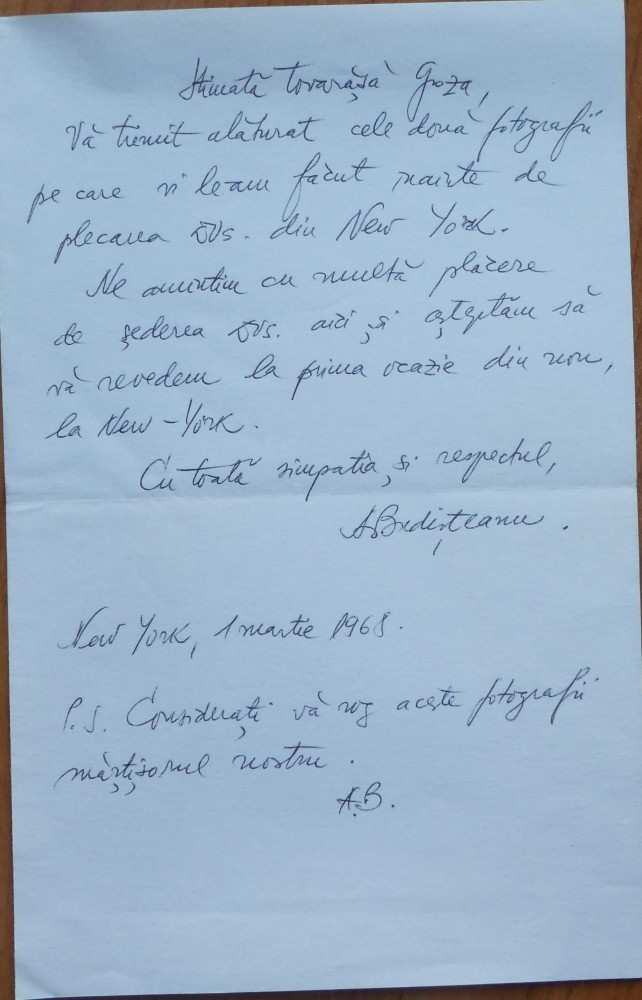 Stimată tovarășă Groza,
Vă trimit alăturat cele două fotografii
pe care vi leam făcut inainte de
plecarea DVs. din New York.
Ne amintim cu multă plăcere
de șederea DVs. aici și așteptăm să
vă revedem la prima ocazie din nou,
la New-York.
Cu toată simpatia și respectul,
ABudișteanu.
New York, 1 martie 1968.
P.S. Considerați vă rog aceste fotografii
mărțișorul nostru.
A.B.